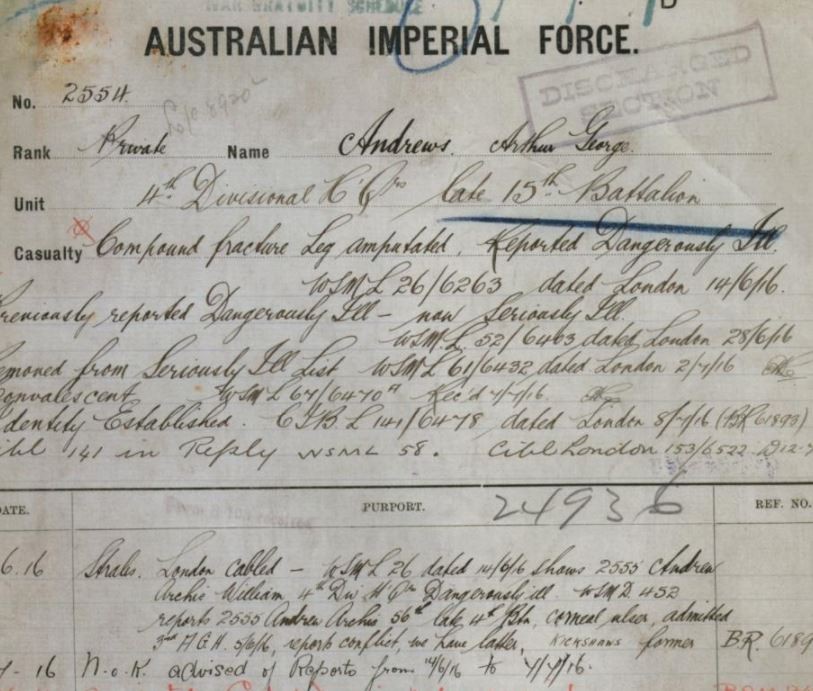 WAR GRATUITY SCHEDULE
AUSTRALIAN IMPERIAL FORCE.
DISCHARGED SECTION
No. 2554.
Rank Private Name Andrews. Arthur George.
Unit 4th Divisional H'Qrs late 15th Battalion
Casualty Compound fracture Leg amputated. Reported Dangerously Ill.
WSML 26/6263 dated London 14/6/16.
reviously reported Dangerously Ill - now Seriously Ill.
WSM.L. 52/6463 dated London 28/6/16
emoved from Seriously Ill List WSML 61/6432 dated London 2/7/16
onvalescent WSML 67/6470 Rec'd 7/7/16.
dentity Established. CIBL 141/6478 dated London 8/7/16 (BR 61893)
141 in Reply WSML 58. London 153/6522
DATE. PURPORT. 24936 REF. NO.
6.16 London cabled - WSML 26 dated 14/6/16 shows 2555 Andrew
Archie William 4th Div H'Qrs Dangerously ill. WSMD 452
reports 2555 Andrew Archie 56th late 4th Btn, corneal ulcer, admitted
3rd A.G.H. 5/6/16, reports conflict, we have latter, former BR. 6189
16 N.o.K. advised of Reports from 14/6/16 to 7/7/16.